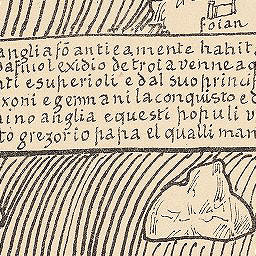 foian
anglia fo antieamente habita
dapnio lexidio de trota venne a q
nti e superioli e dal suo princi
xoni e germani la conquisto e
aino anglia e questi populi v
to gregorio papa el qualli man